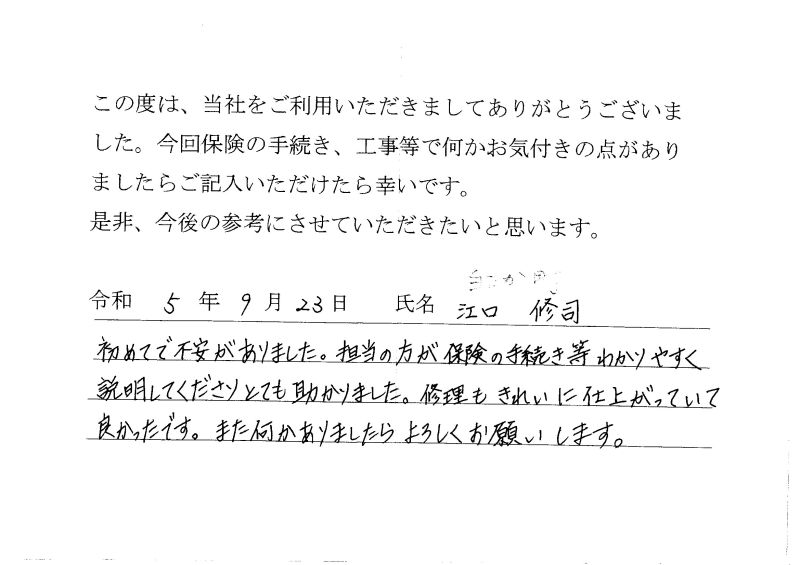 この度は、当社をご利用いただきましてありがとうございま
した。今回保険の手続き、工事等で何かお気付きの点があり
ましたらご記入いただけたら幸いです。
是非、今後の参考にさせていただきたいと思います。
令和 5 年 9 月 23 日 氏名 江口 修司
初めてで不安がありました。担当の方が保険の手続き等わかりやすく
説明してくださりとても助かりました。修理もきれいに仕上がっていて
良かったです。また何かありましたらよろしくお願いします。